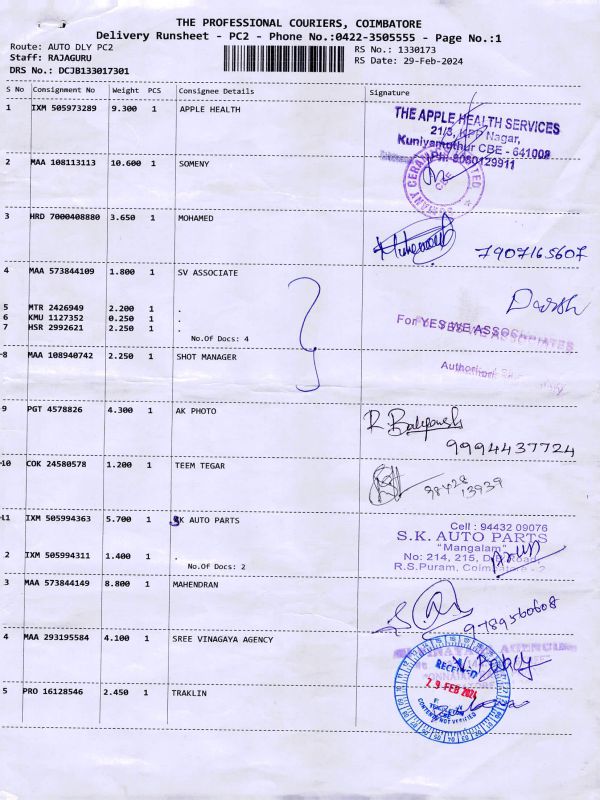 THE PROFESSIONAL COURIERS, COIMBATORE
Delivery Runsheet - PC2 - Phone No.:0422-3505555 - Page No.:1
Route: AUTO DLY PC2
RS No.: 1330173
Staff: RAJAGURU
RS Date: 29-Feb-2024
DRS No.: DCJB133017301
S No Consignment No Weight PCS Consignee Details Signature
1 IXM 505973289 9.300 1 APPLE HEALTH
THE APPLE HEALTH SERVICES
21/3, Nagar,
Kuniyamuthur CBE - 641008
2 MAA 108113113 10.600 1 SOMENY
3 HRD 7000408880 3.650 1 MOHAMED
7907165607
4 MAA 573844109 1.800 1 SV ASSOCIATE
5 MTR 2426949 2.200 1 .
6 KMU 1127352 0.250 1 .
7 HSR 2992621 2.250 1 .
No.Of Docs: 4
For YES WE
8 MAA 108940742 2.250 1 SHOT MANAGER
9 PGT 4578826 4.300 1 AK PHOTO
9994437724
10 COK 24580578 1.200 1 TEEM TEGAR
98428
13939
11 IXM 505994363 5.700 1 SK AUTO PARTS
Cell : 94432 09076
S.K. AUTO PARTS
"Mangalam"
No: 214, 215, Road,
R.S.Puram, - 2
2 IXM 505994311 1.400 1 .
No.Of Docs: 2
3 MAA 573844149 8.800 1 MAHENDRAN
9789560608
4 MAA 293195584 4.100 1 SREE VINAGAYA AGENCY
RECEIVED
29 FEB 2024
CONTENTS NOT VERIFIED
5 PRO 16128546 2.450 1 TRAKLIN